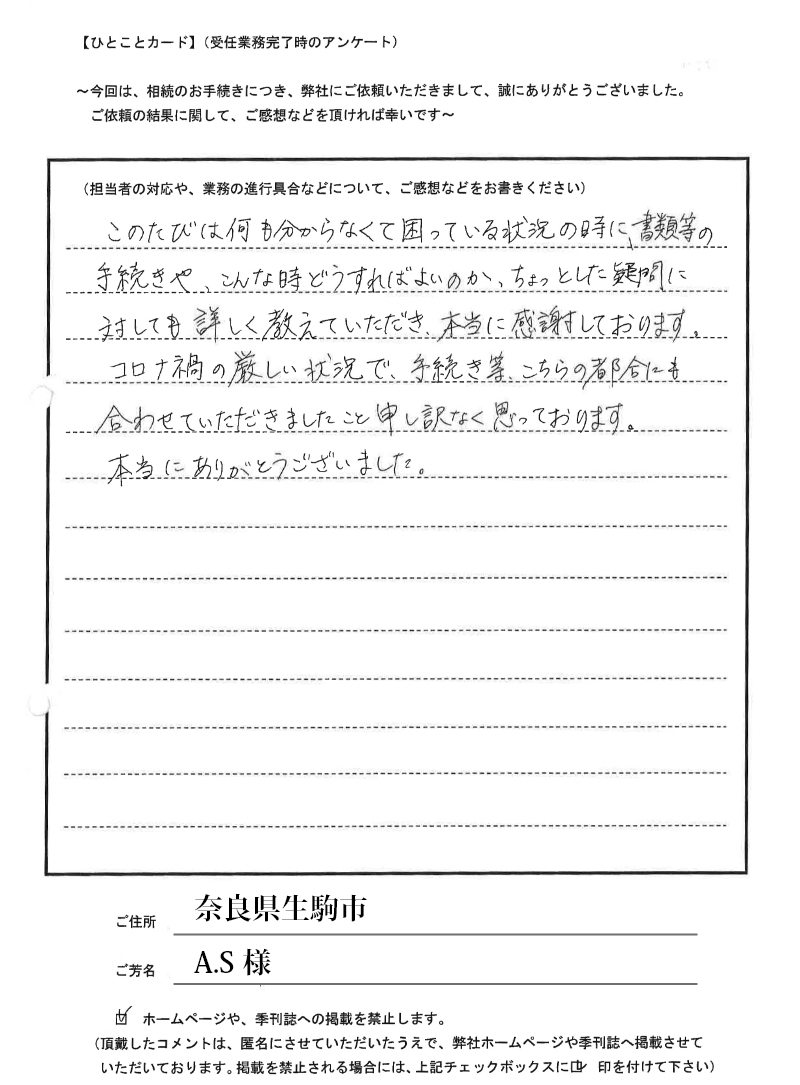 【ひとことカード】（受任業務完了時のアンケート）
～今回は、相続のお手続きにつき、弊社にご依頼いただきまして、誠にありがとうございました。
ご依頼の結果に関して、ご感想などを頂ければ幸いです～
（担当者の対応や、業務の進行具合などについて、ご感想などをお書きください）
このたびは何も分からなくて困っている状況の時に、書類等の
手続きや、こんな時どうすればよいのか、ちょっとした疑問に
対しても詳しく教えていただき、本当に感謝しております。
コロナ禍の厳しい状況で、手続き等、こちらの都合にも
合わせていただきましたこと申し訳なく思っております。
本当にありがとうございました。
ご住所 奈良県生駒市
ご芳名 A.S 様
☑ ホームページや、季刊誌への掲載を禁止します。
（頂戴したコメントは、匿名にさせていただいたうえで、弊社ホームページや季刊誌へ掲載させて
いただいております。掲載を禁止される場合には、上記チェックボックスに☑ 印を付けて下さい）